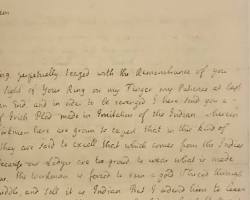 perpetually teazed with the Remembrance of you
Sight of Your Ring on my Finger my Patience at last
an End, and in order to be revenged I have sent you a
of Irish Plad made in Imitation of the Indian wherein
workmen here are grown so expert that in this kind of
they are said to excell that which comes from the Indies
because our Ladyes are too proud to wear what is made
the workman is forced to run a gold Thread through
middle, and sell it as Indian But I ordered him to leave